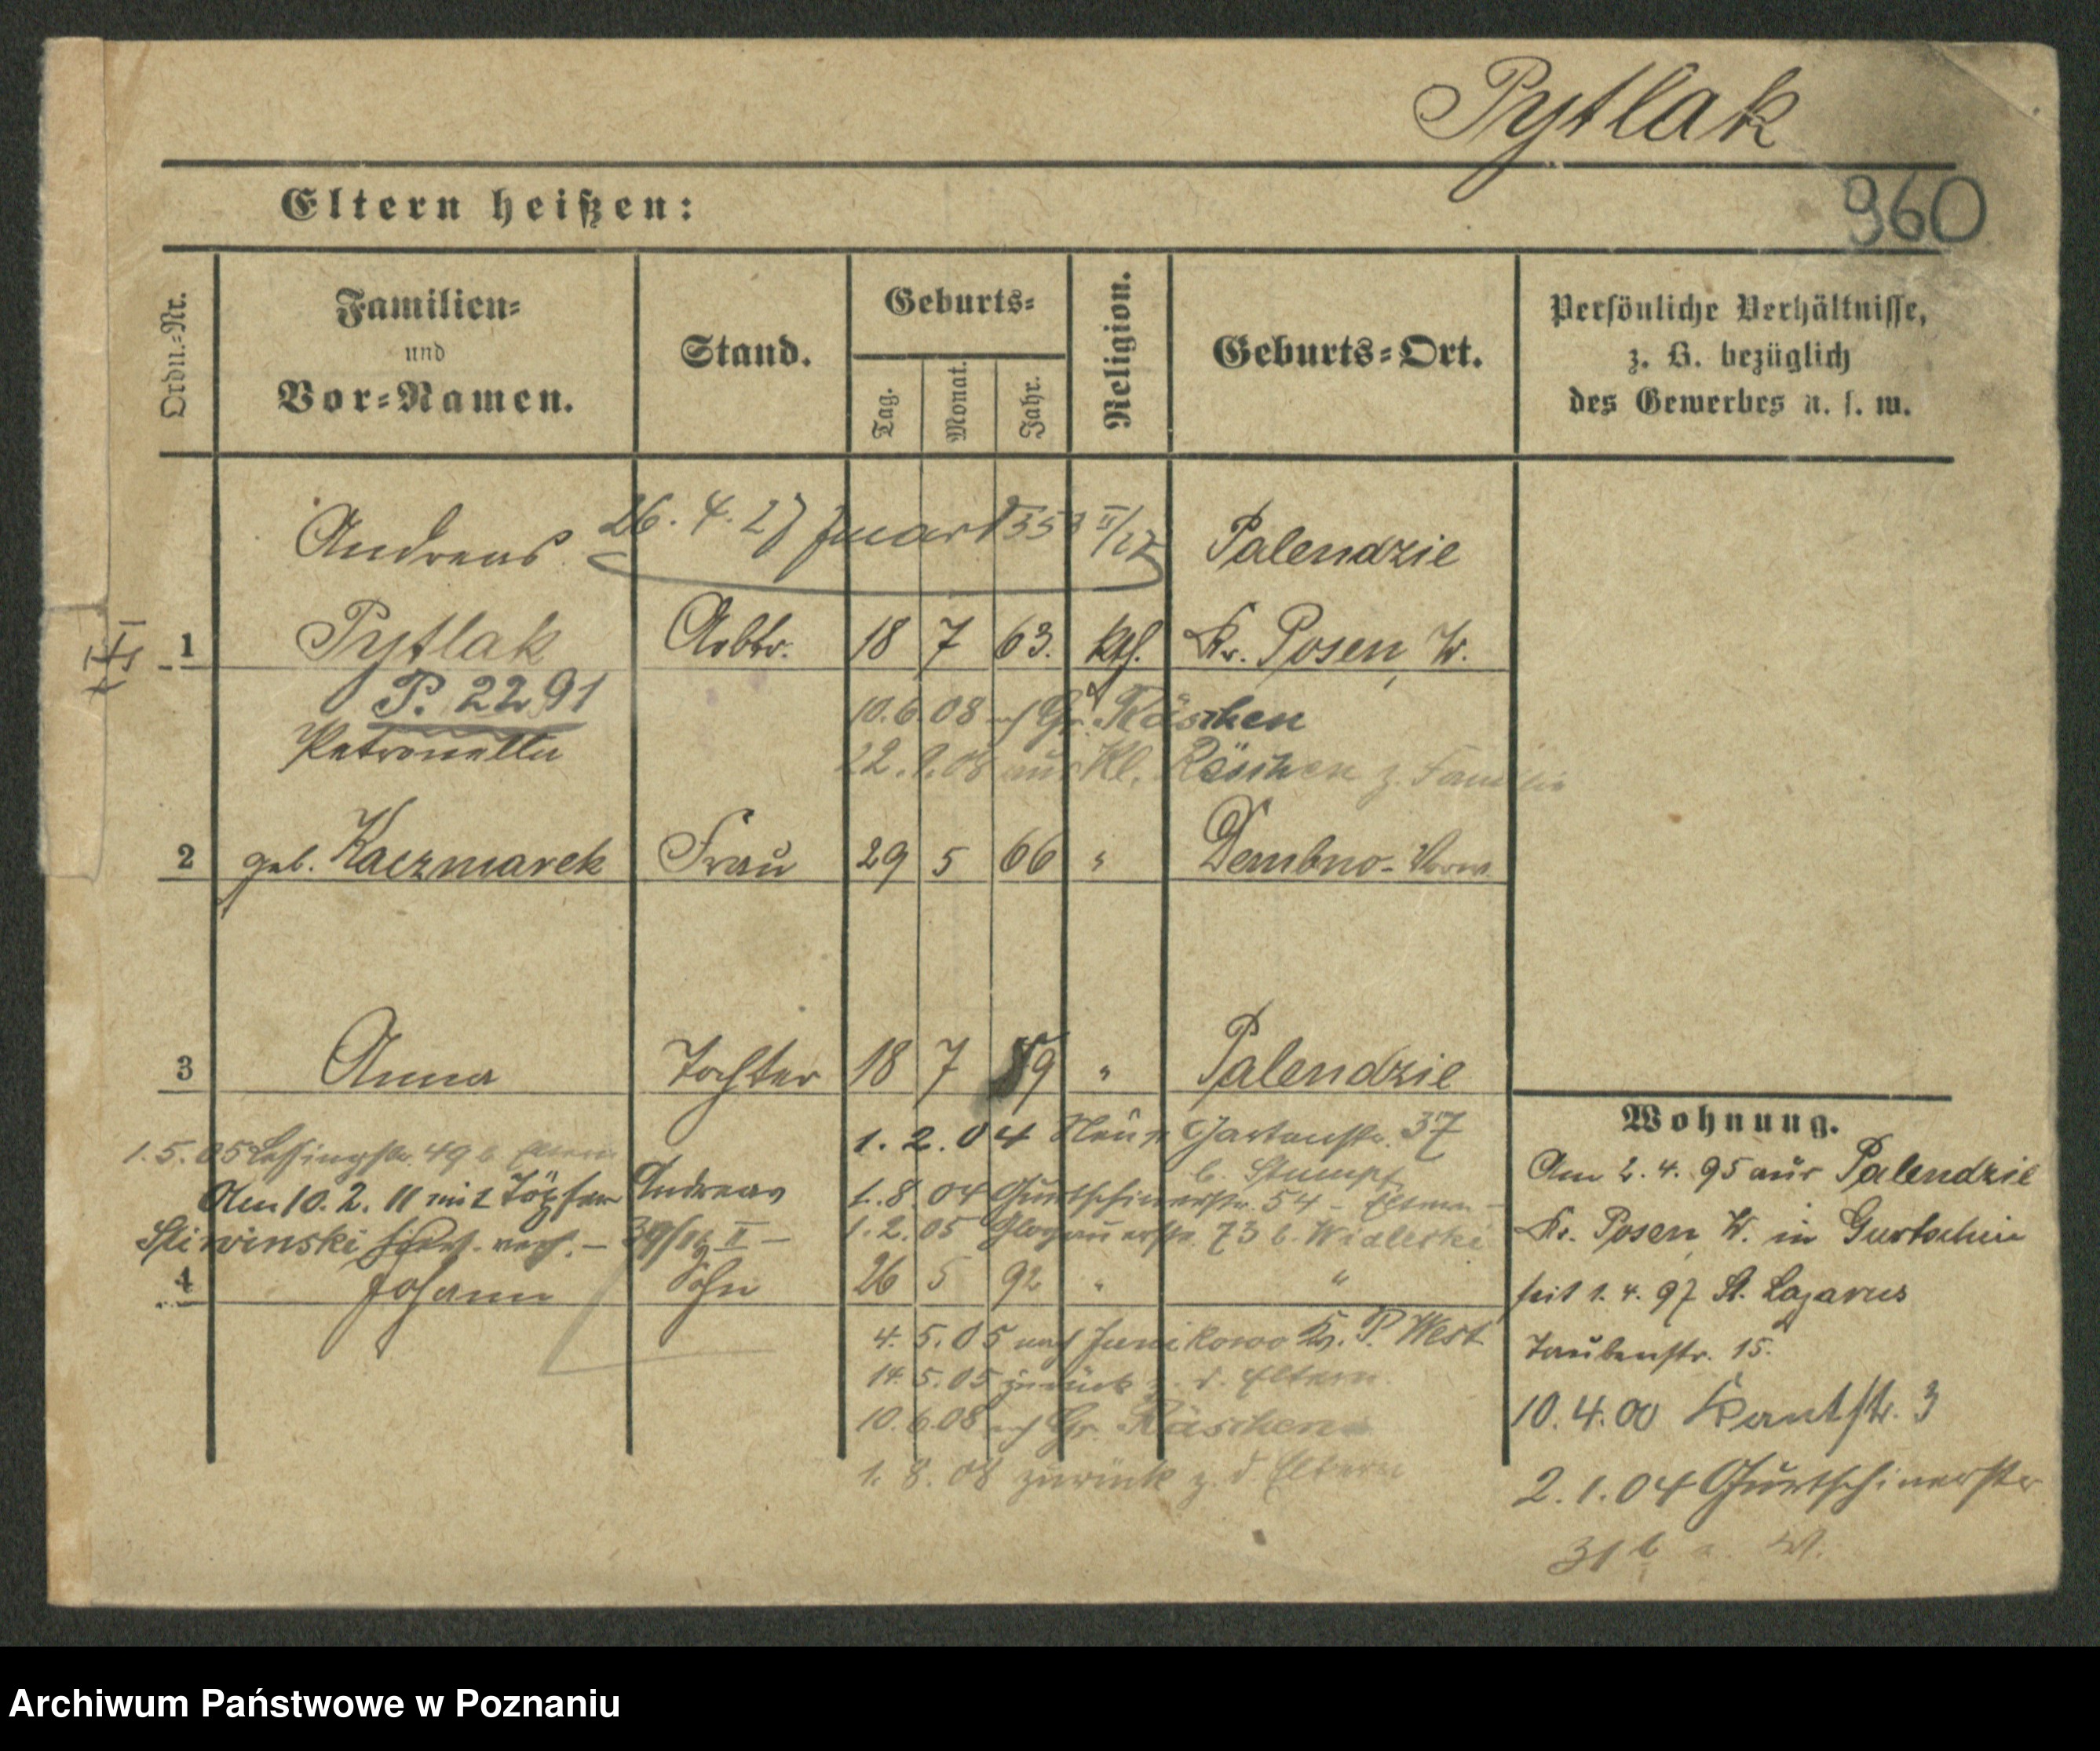 Pytlak
960
Eltern heißen:
Ordn.-Nr.
Familien-
und
Vor-Namen.
Stand.
Geburts-
Tag.
Monat.
Jahr.
Religion.
Geburts-Ort.
Persönliche Verhältnisse,
z. B. bezüglich
des Gewerbes u. s. w.
Andreas 26. 4. 27 Palendzie
1 Pytlak Arbtr. 18 7 63. kth. Kr. Posen, W.
P. 2291
10.6.08 Gr. Räschen
Petronella
22. 08 aus Kl. Räschen z. Familie
2 geb. Kaczmarek Frau 29 5 66 " Dembno-
3 Anna Tochter 18 7 89 " Palendzie
1. 2. 04 Neue Gartenstr. 37
b. Stumpf
1. 5. 05 Lessingstr. 49 b. Eltern
1. 8. 04 Gurtschinerstr. 54 - Eltern -
Am 10. 2. 11 mit Töpfer Andreas
1. 2. 05 Glogauerstr. 73 b.
Sliwinski verh. -
4 Johann Sohn 26 5 92 " "
4. 5. 05 nach Junikowo Kr. P. West
14. 5. 05 zurück z. d. Eltern.
10.6.08 Gr. Räschen
1. 8. 08 zurück z. d Eltern
Wohnung.
Am 2. 4. 95 aus Palendzie
Kr. Posen, W. in Gurtschin
seit 1. 4. 97 St. Lazarus
Taubenstr. 15.
10. 4. 00 Kantstr. 3
2. 1. 04 Gurtschinerstr
31 b
Archiwum Państwowe w Poznaniu